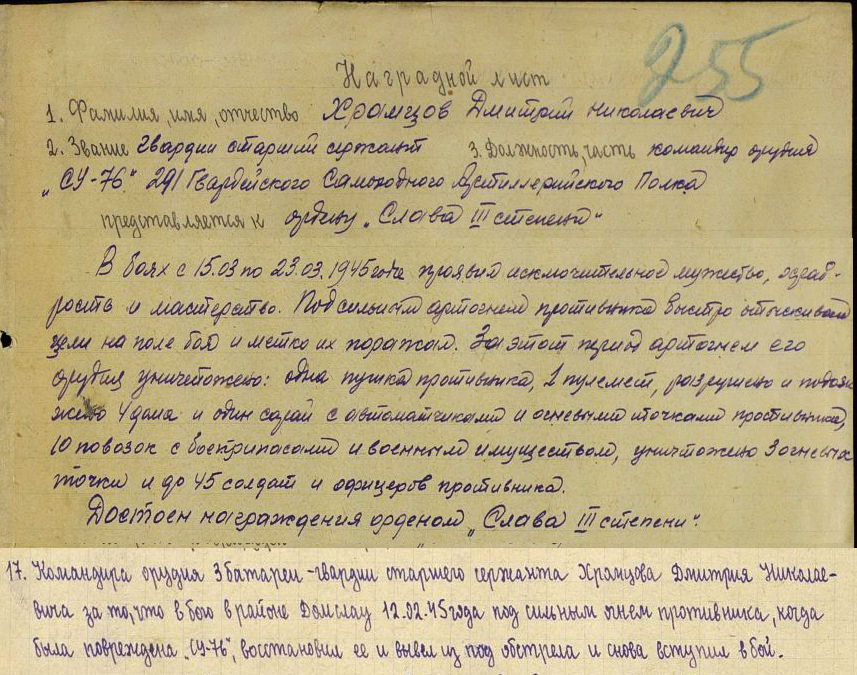 255
Наградной лист
1. Фамилия, имя, отчество Храмцов Дмитрий Николаевич
2. Звание гвардии старший сержант 3. Должность, часть командир орудия
„СУ-76" 291 Гвардейского Самоходного Артиллерийского Полка
представляется к ордену „Слава III степени"
В боях с 15.03 по 23.03.1945 года проявил исключительное мужество, храб-
рость и мастерство. Под сильным артогнем противника быстро отыскивал
цели на поле боя и метко их поражал. За этот период артогнем его
орудия уничтожено: одна пушка противника, 1 пулемет, разрушено и подож
жено 4 дома и один сарай с автоматчиками и огневыми точками противника,
10 повозок с боеприпасами и военным имуществом, уничтожено 3 огневых
точки и до 45 солдат и офицеров противника.
Достоен награждения орденом „Слава III степени".
17. Командира орудия 3 батареи - гвардии старшего сержанта Храмцова Дмитрия Николае-
вича за то, что в бою в районе Домслау 12.02.45 года под сильным огнем противника, когда
была повреждена „СУ-76", восстановил ее и вывел из под обстрела и снова вступил в бой.